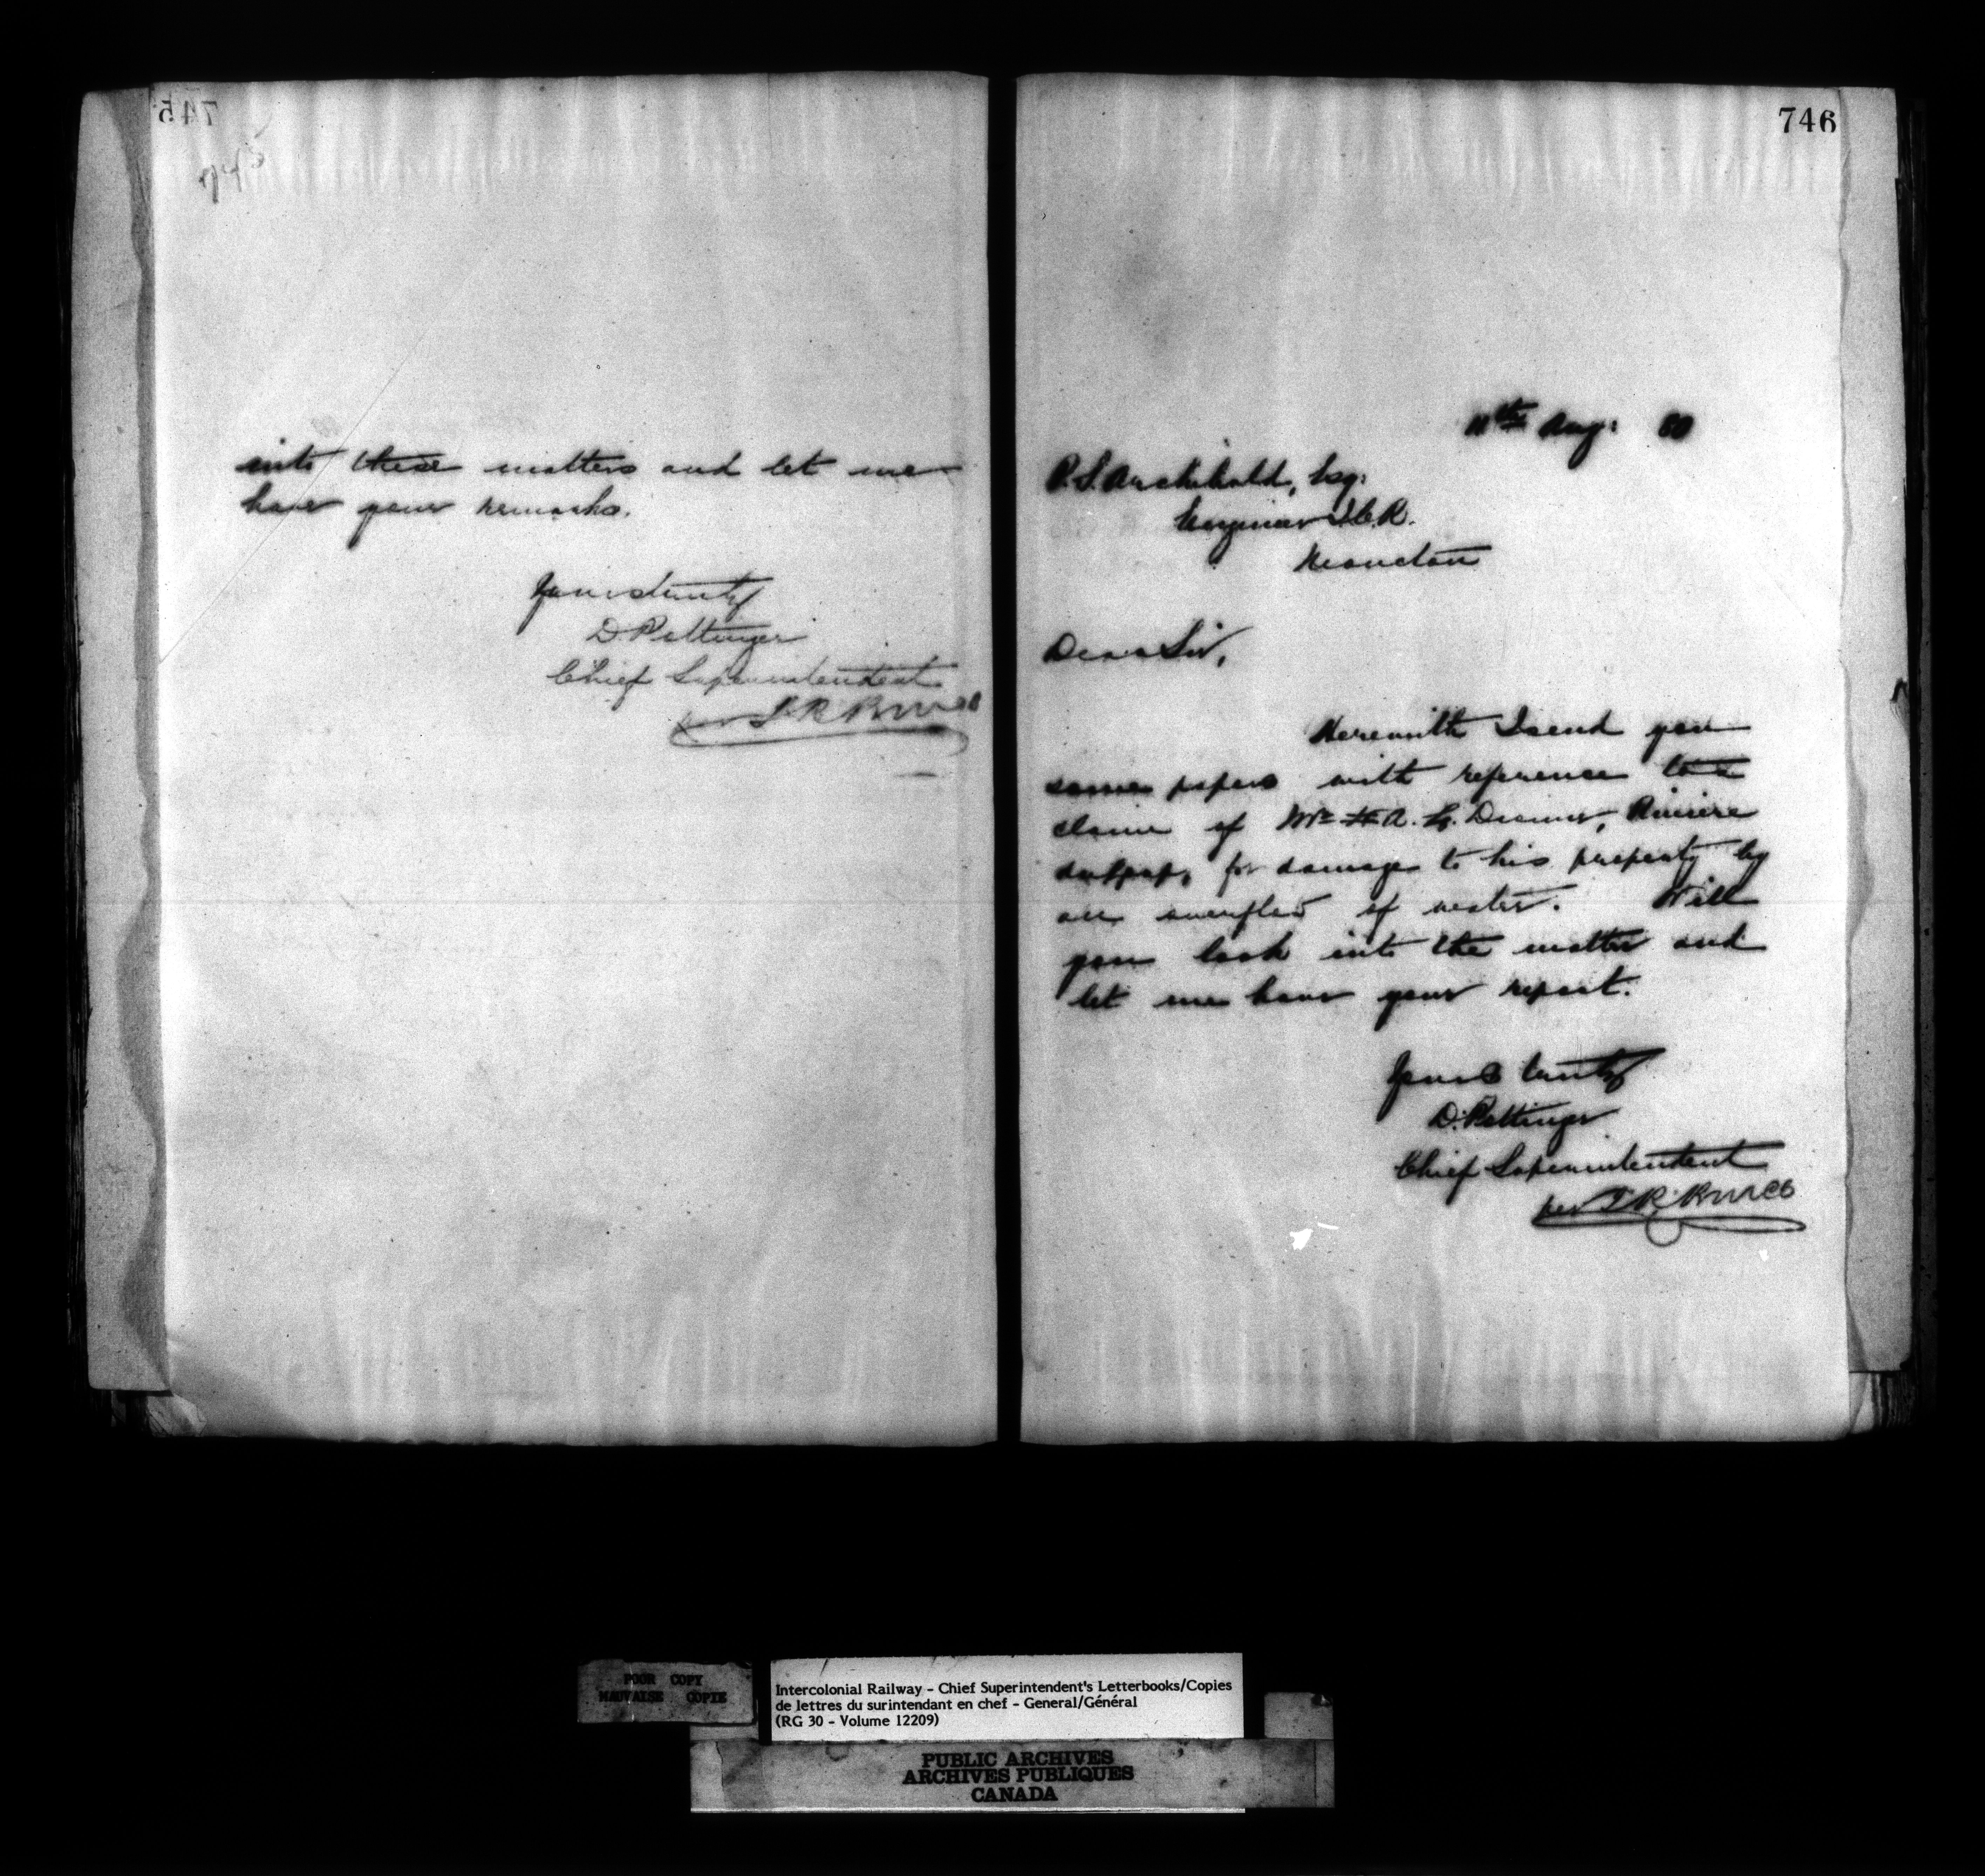 745
745
into these matters and let me
have your remarks.
Yours truly
D Pottinger
Chief Superintendent
per J. R. Bruce
746
11th Aug: 80
P. S. Archibald, Esq:
Engineer I.C.R.
Moncton
Dear Sir,
Herewith I send you
some papers with reference to a
claim of Mr A. G. , Riviere
for damage to his property by
an overflow of water. Will
you look into the matter and
let me have your report.
Yours truly
D. Pottinger
Chief Superintendent
per J. R. Bruce
POOR COPY
MAUVAISE COPIE
Intercolonial Railway - Chief Superintendent's Letterbooks/Copies
de lettres du surintendant en chef - General/Général
(RG 30 - Volume 12209)
PUBLIC ARCHIVES
ARCHIVES PUBLIQUES
CANADA